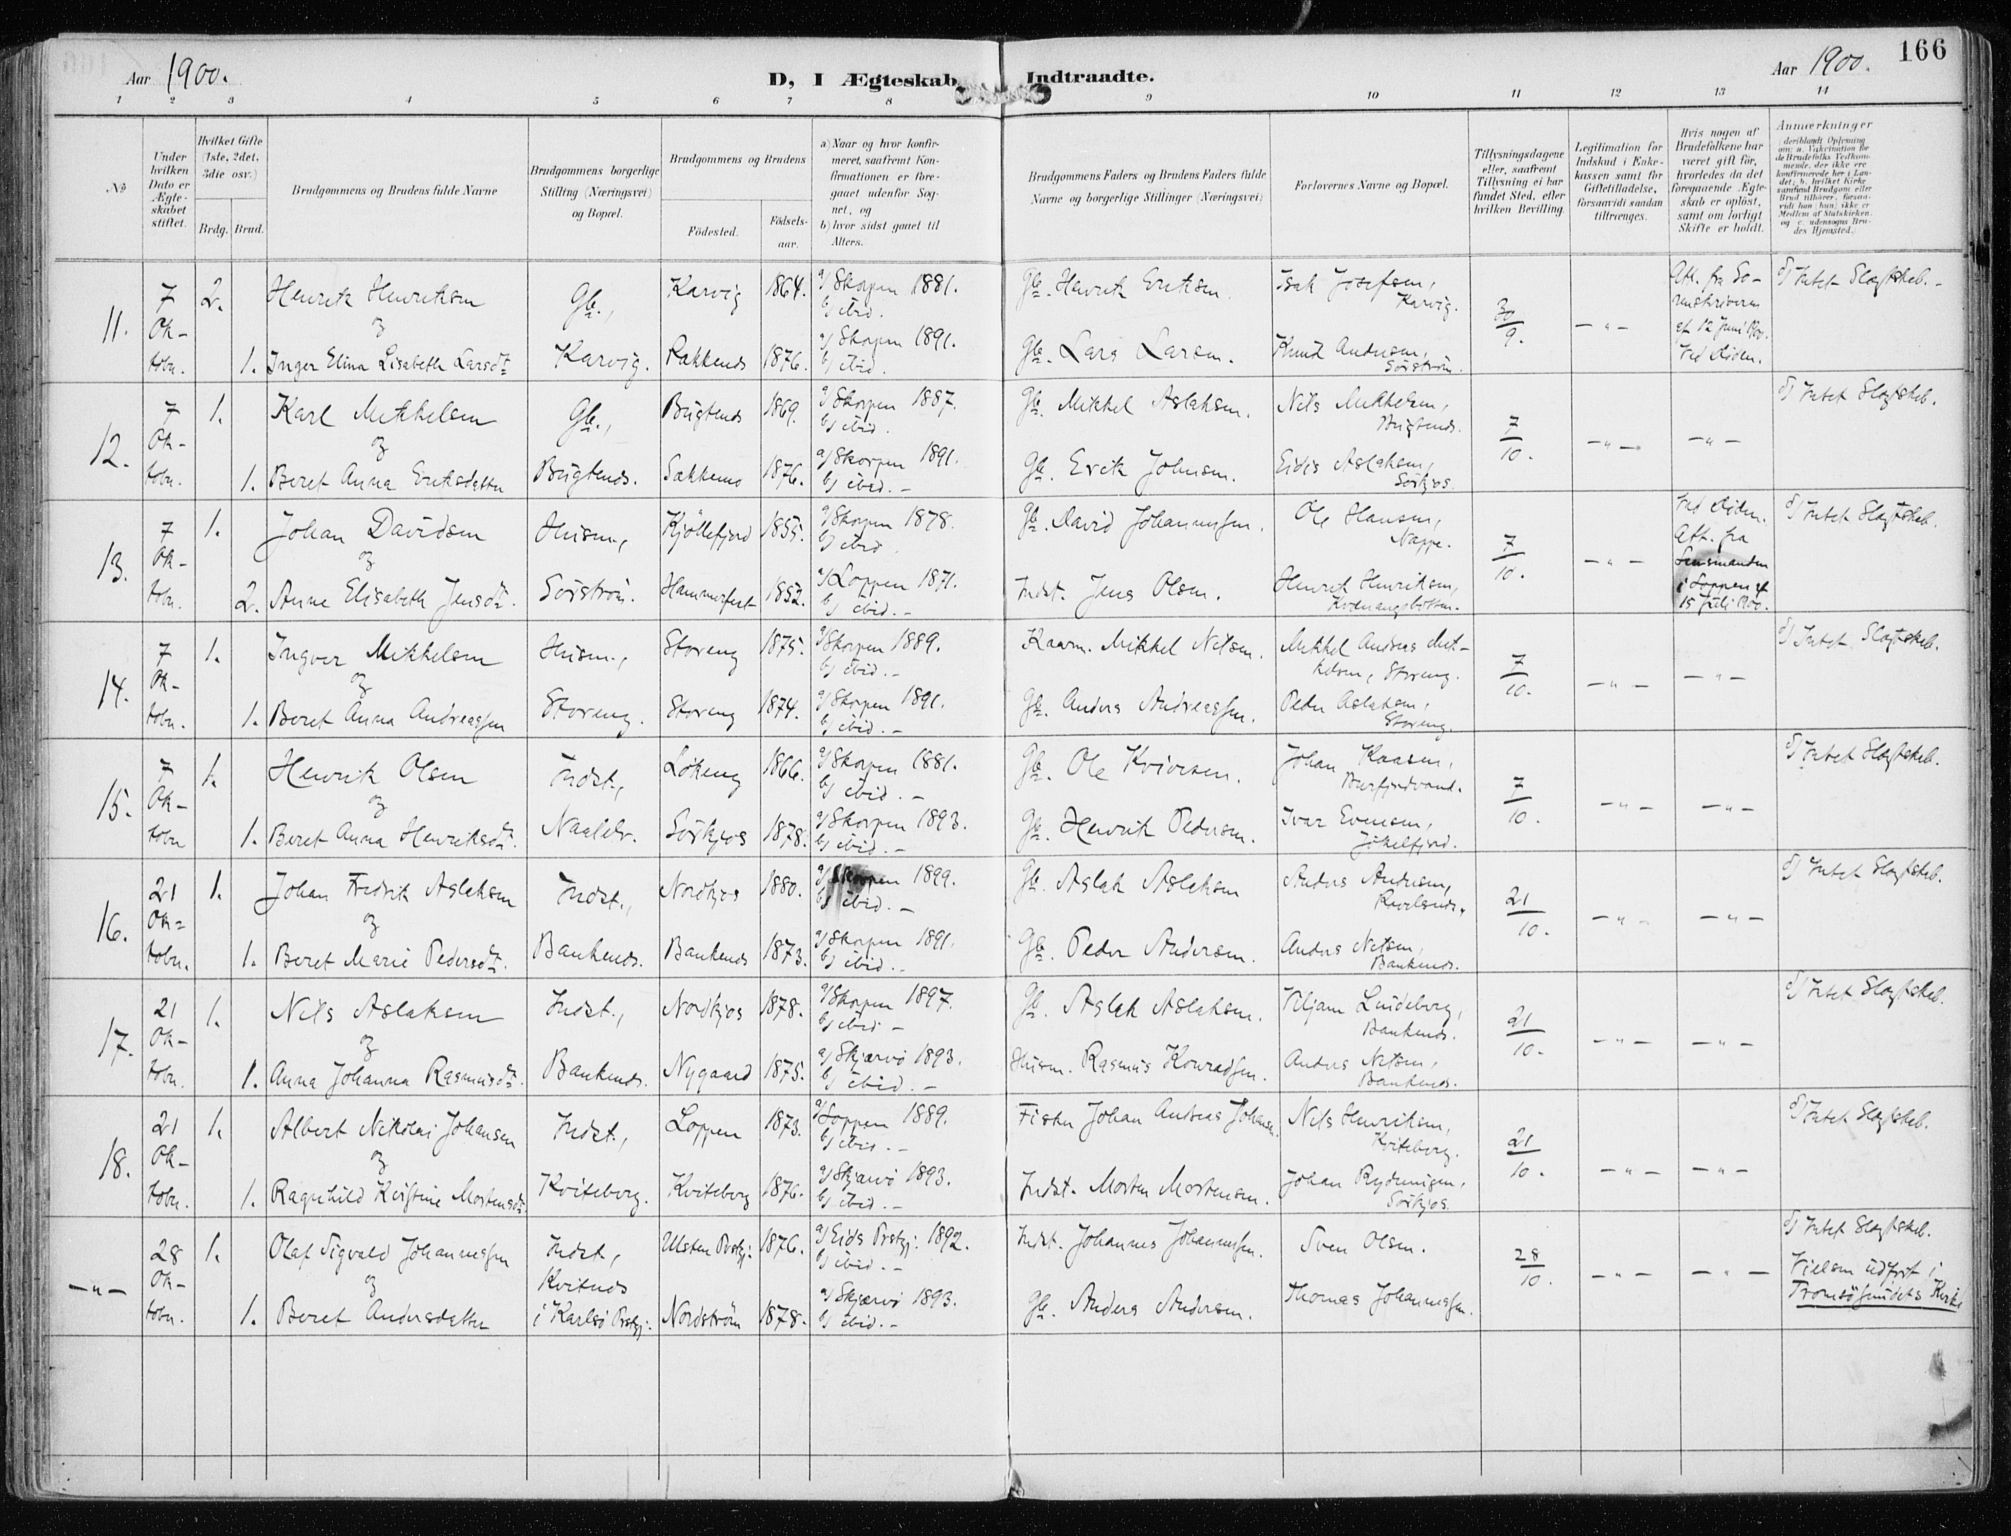 166
Aar 1900. D, I Ægteskab Indtraadte. Aar 1900.
1 2 3 4 5 6 7 8 9 10 11 12 13 14
No
Under hvilken Dato er Ægteskabet stiftet.
Hvilket Gifte (1ste, 2det, 3die osv.)
Brdg. Brud.
Brudgommens og Brudens fulde Navne
Brudgommens borgerlige Stilling (Næringsvei) og Bopæl.
Brudgommens og Brudens
Fødested. Fødselsaar.
a) Naar og hvor konfirmeret, saafremt Konfirmationen er foregaaet udenfor Sognet, og
b) hvor sidst gaaet til Alters.
Brudgommens Faders og Brudens Faders fulde Navne og borgerlige Stillinger (Næringsvei)
Forlovernes Navne og Bopæl.
Tillysningsdagene eller, saafremt Tillysning ei har fundet Sted, efter hvilken Bevilling.
Legitimation for Indskud i Enkekassen samt for Giftetilladelse, forsaavidt saadan tiltrænges.
Hvis nogen af Brudefolkene har været gift før, hvorledes da det foregaaende Ægteskab er opløst, samt om lovligt Skifte er holdt.
Anmærkninger
(deriblandt Oplysning om: a. Vakcination for de Brudefolks Vedkommende, der ikke ere konfirmerede her i Landet; b. hvilket Kirkesamfund Brudgom eller Brud tilhører, forsaavidt han (hun) ikke er Medlem af Statskirken, og c. udensogns Brudes Hjemsted.)
11. 7 Oktober. 2. Henrik Henriksen Gb., Karvig 1864. a/ Skorpen 1881. b/ ibid. Gb. Henrik Eriksen Isak Josefsen, Karvig. 30/9. — „ — Att. fra Sorenskriveren af 12 Juni 1900. Ved Døden. c/ Intet Slægtskab. —
og
1. Inger Elina Lisabeth Larsdt. Karvig. Pakkends 1876. a/ Skorpen 1891. b/ ibid. Gb. Lars Larsen. Knud Andersen, Sørstrøm.
12. 7 Oktober. 1. Karl Mikkelsen Gb., Bugtends 1869. a/ Skorpen 1887. b/ ibid. Gb. Mikkel Aslaksen. Nils Mikkelsen, Bugtends. 7/10. — „ — — „ — c/ Intet Slægtskab.
og
1. Beret Anna Eriksdatter Bugtends. Sakkemo 1876. a/ Skorpen 1891. b/ ibid. — Gb. Erik Johnsen. Aslaksen, Sørkjos.
13. 7 Oktober. 1. Johan Davidsen Husm., Kjøllefjord 1855. a/ Skorpen 1878. b/ ibid. Gb. David Johannessen. Ole Hansen, Nappe. 7/10. — „ — Ved Døden. Att. fra Lensmanden i Loppen af 15 Juli 1900. c/ Intet Slægtskab.
og
2. Anne Elisabeth Jensdt. Sørstrøm. Hammerfest 1852. a/ Loppen 1871. b/ ibid. — Indst. Jens Olsen. Henrik Henriksen, Kvænangsbotten.
14. 7 Oktober. 1. Ingver Mikkelsen Husm., Storeng 1875. a/ Skorpen 1889. b/ ibid. — Mikkel Nilsen. Mikkel Andreas Mikkelsen, Storeng. 7/10. — „ — — „ — c/ Intet Slægtskab.
og
1. Beret Anna Andreassen Storeng. Storeng 1874. a/ Skorpen 1891. b/ ibid. — Gb. Anders Andreassen. Peder Aslaksen, Storeng.
15. 7 Oktober 1. Henrik Olsen Indst., Løkeng 1866. a/ Skorpen 1881. b/ ibid. — Gb. Ole Kviversen. Johan Kaasen, Burfjordvand. 7/10. — „ — — „ — c/ Intet Slægtskab.
og
1. Beret Anna Henriksdt. Naalelv. Sørkjos 1878. a/ Skorpen 1893. b/ ibid. — Gb. Henrik Pedersen. Ivar Evensen, Jøkelfjord.
16. 21 Oktober. 1. Johan Fredrik Aslaksen Indst., Nordkjos 1880. a/ Skorpen 1899. b/ ibid. — Gb. Aslak Aslaksen Anders Andersen, 21/10. — „ — — „ — c/ Intet Slægtskab.
og
1. Beret Marie Pedersdt. Bankends. Bankends 1873. a/ Skorpen 1891. b/ ibid. — Gb. Peder Andersen. Anders Nilsen, Bankends.
17. 21 Oktober. 1. Nils Aslaksen Indst., Nordkjos 1878. a/ Skorpen 1897. b/ ibid. — Gb. Aslak Aslaksen. Viljam Lindeborg, Bankends. 21/10. — „ — — „ — c/ Intet Slægtskab.
og
1. Anna Johanna Rasmusdt. Bankends. Nygaard 1875. a/ Skjærvø 1893. b/ ibid. — Husm. Rasmus Konradsen. Anders Nilsen, Bankends.
18. 21 Oktober. 1. Albert Nikolai Johansen Indst., Loppen 1873. a/ Loppen 1889. b/ ibid. — Fisker Johan Andreas Johansen. Nils Henriksen, Kviteberg. 21/10. — „ — — „ — c/ Intet Slægtskab.
og
1. Ragnhild Kristine Mortensdt. Kviteberg. Kviteberg 1876. a/ Skjærvø 1893. b/ ibid. — Indst. Morten Mortensen. Johan Rydningen, Sørkjos.
— „ — 28 Oktober. 1. Olaf Sigvald Johannessen Indst., Kvitnes i Karlsø Prstgj. Ulsten Prstgj. 1876. a/ Eids Prstgj. 1892. b/ ibid. — Indst. Johannes Johannessen. Sven Olsen. 28/10. — „ — — „ — c/ Intet Slægtskab. Vielsen udført i Tromsøsundets Kirke
og
1. Beret Andersdatter Nordstrøm 1878. a/ Skjærvø 1893. b/ ibid. — Gb. Anders Andersen. Thomas Johannessen.